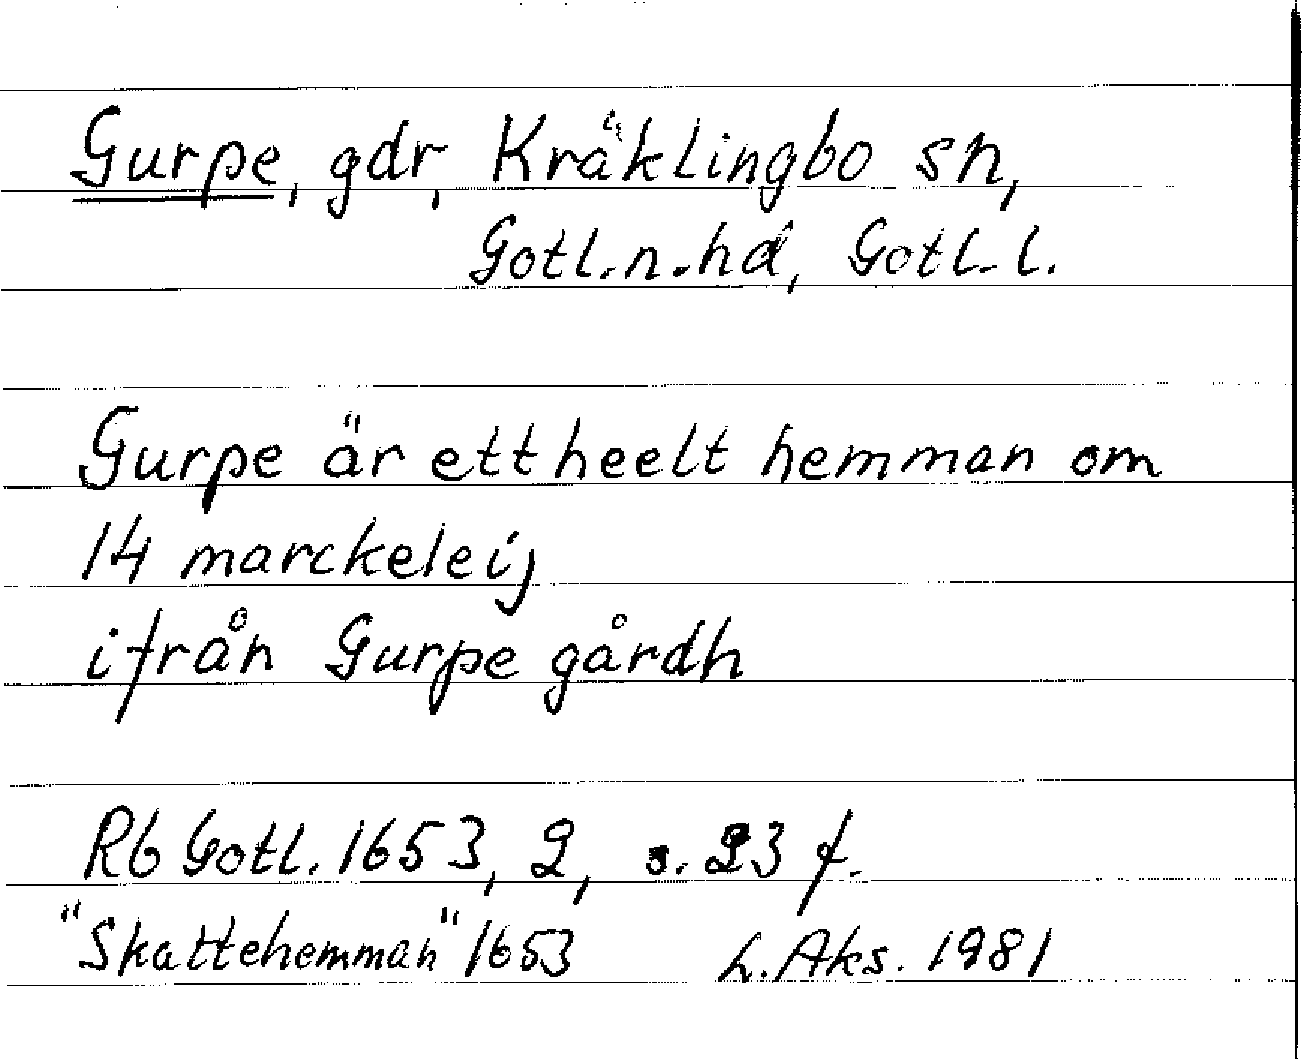 Gurpe, gdr, Kräklingbo sn,
Gotl. n. hd, Gotl. l.
Gurpe är ett heelt hemman om
14 marckeleij
ifrån Gurpe gårdh
Rb Gotl. 1653, 2, s. 23 f.
"Skattehemman" 1653 L. Aks. 1981